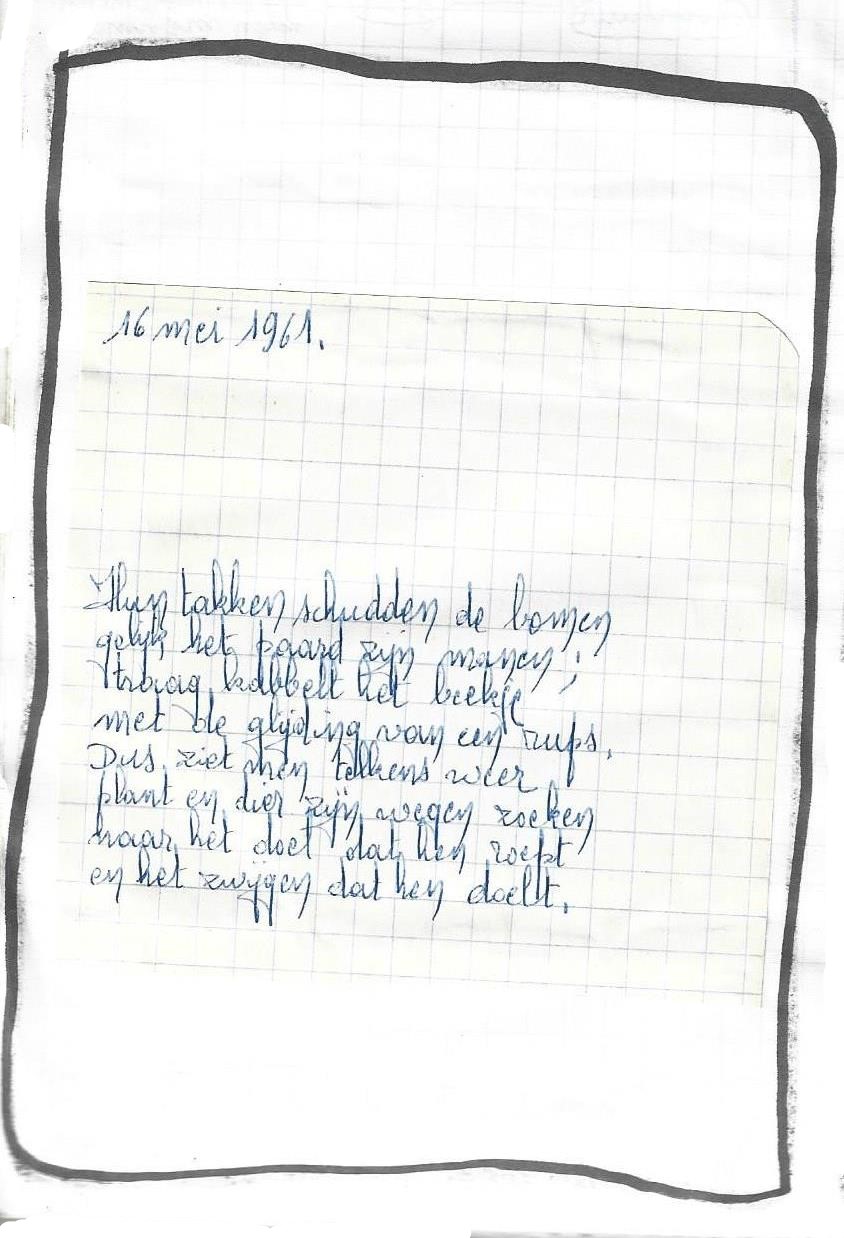 16 mei 1961.
Hun takken schudden de bomen
gelijk het paard zijn manen;
traag kabbelt het beekje
met de glijding van een rups.
Dus ziet men telkens weer
plant en dier zijn wegen zoeken
naar het doel dat hen roept
en het zwijgen dat hen doelt.